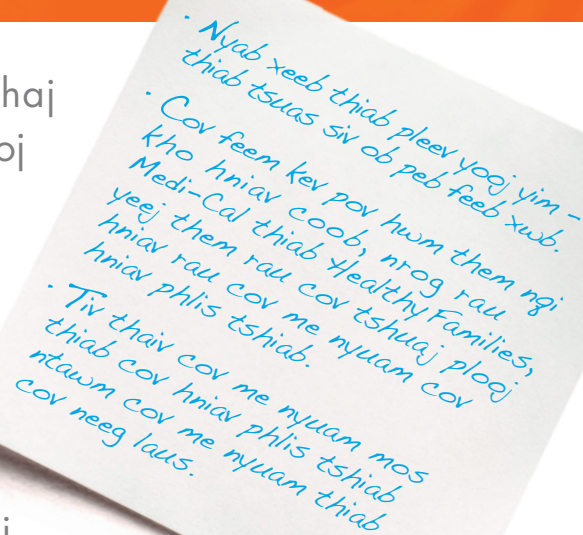 haj
oj
· Nyab xeeb thiab pleev yooj yim –
thiab tsuas siv ob peb feeb xwb.
· Cov feem kev pov hwm them nqi
kho hniav coob, nrog rau
Medi-Cal thiab Healthy Families,
yeej them rau cov tshuaj plooj
hniav rau cov me nyuam cov
hniav phlis tshiab.
· Tiv thaiv cov me nyuam mos
thiab cov hniav phlis tshiab
ntawm cov me nyuam thiab
cov neeg laus.